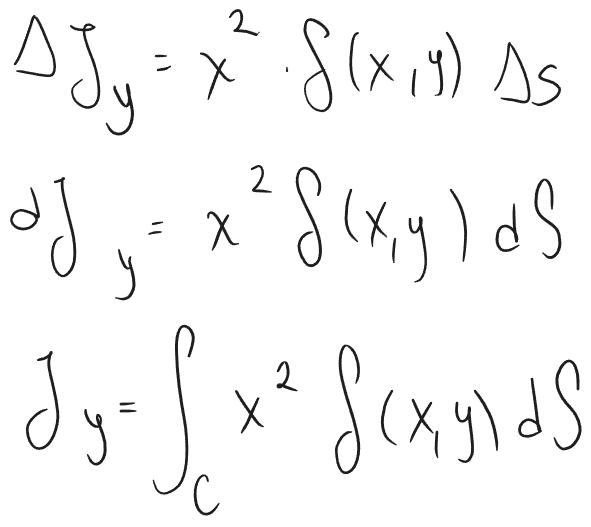 ΔJ_y = x² · δ(x,y) Δs
dJ_y = x² δ(x,y) dS
J_y = ∫_C x² δ(x,y) dS